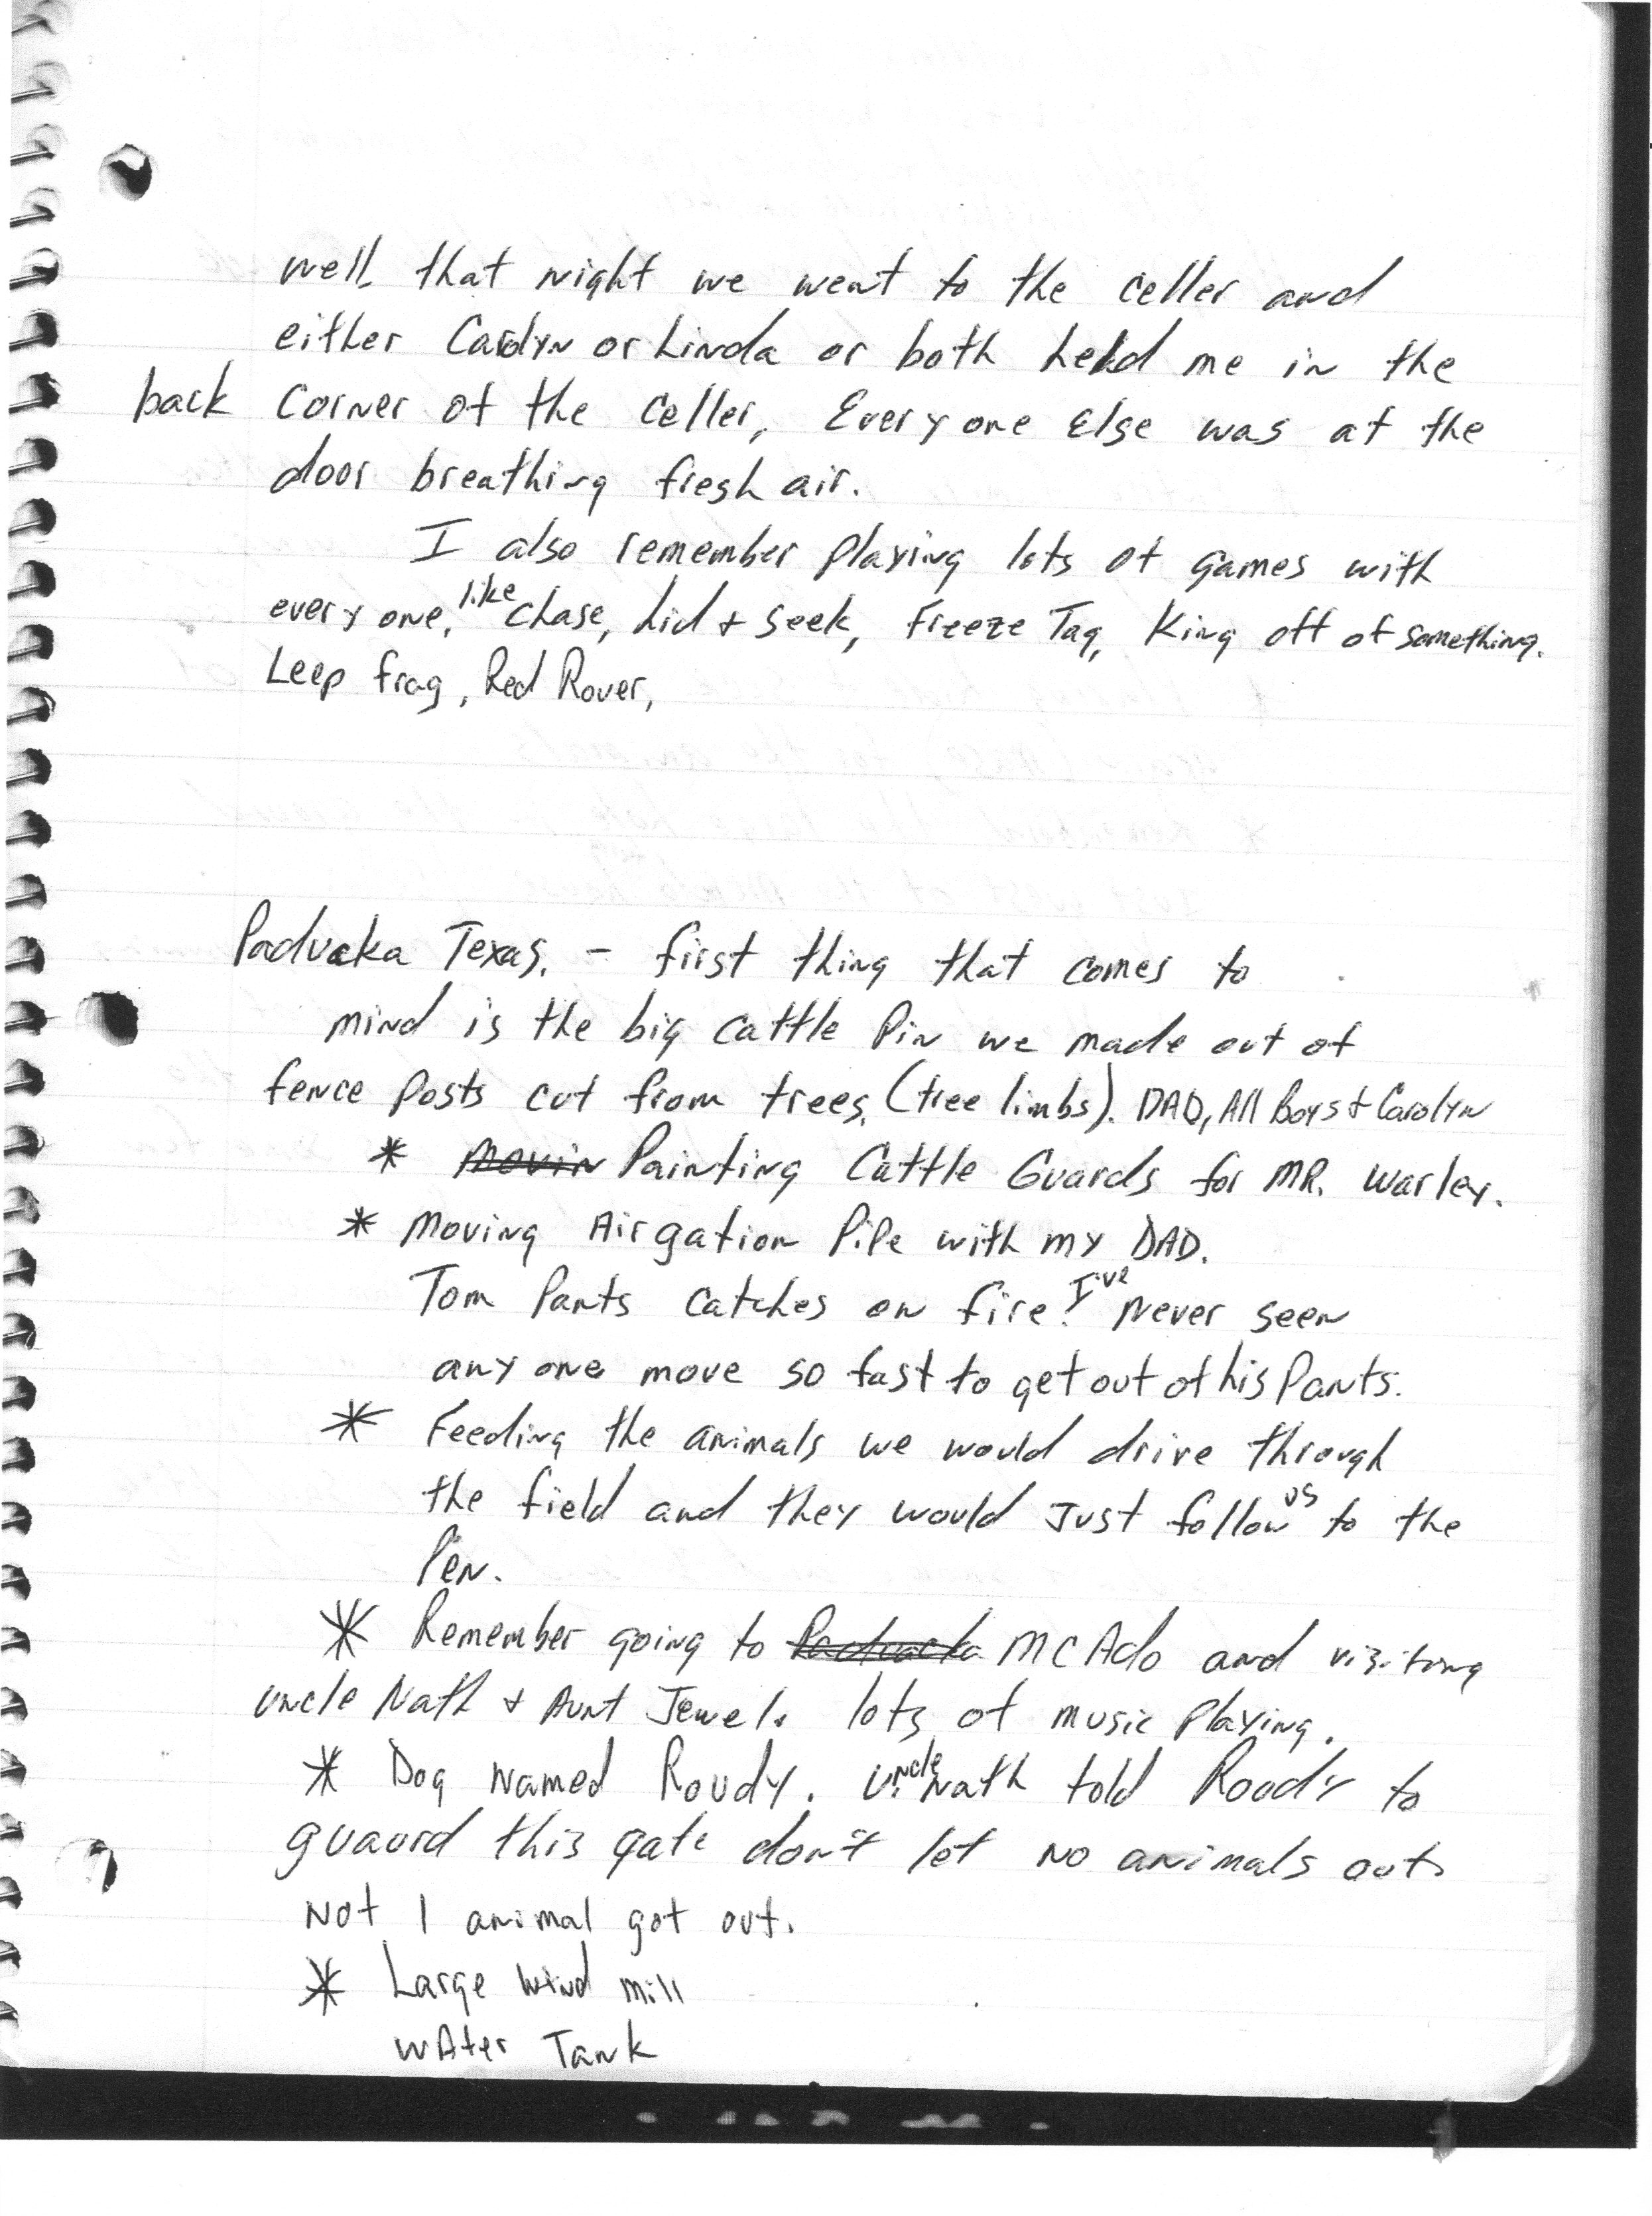 well, that night we went to the celler and
either Carolyn or Linda or both held me in the
back corner of the celler, Everyone Else was at the
door breathing fresh air.
I also remember playing lots of games with
every one, like chase, hid + seek, Freeze Tag, King off of something.
Leep frag, Red Rover,
Paducka Texas. - first thing that comes to
mind is the big cattle Pin we made out of
fence Posts cut from trees. (tree limbs). DAD, All Boys + Carolyn
* Movin Painting Cattle Guards for MR. Warley.
* Moving Airgation PiPe with my DAD.
Tom Pants catches on fire! I've Never seen
any one move so fast to get out of his Pants.
* Feeding the animals we would drive through
the field and they would Just follow us to the
Pen.
* Remember going to Paducka McAdo and visiting
uncle Nath + Aunt Jewel. lots of music Playing.
* Dog Named Roudy. Uncle Nath told Roudy to
guaurd this gate don't let no animals out.
Not 1 animal got out.
* Large Wind mill
WAter Tank